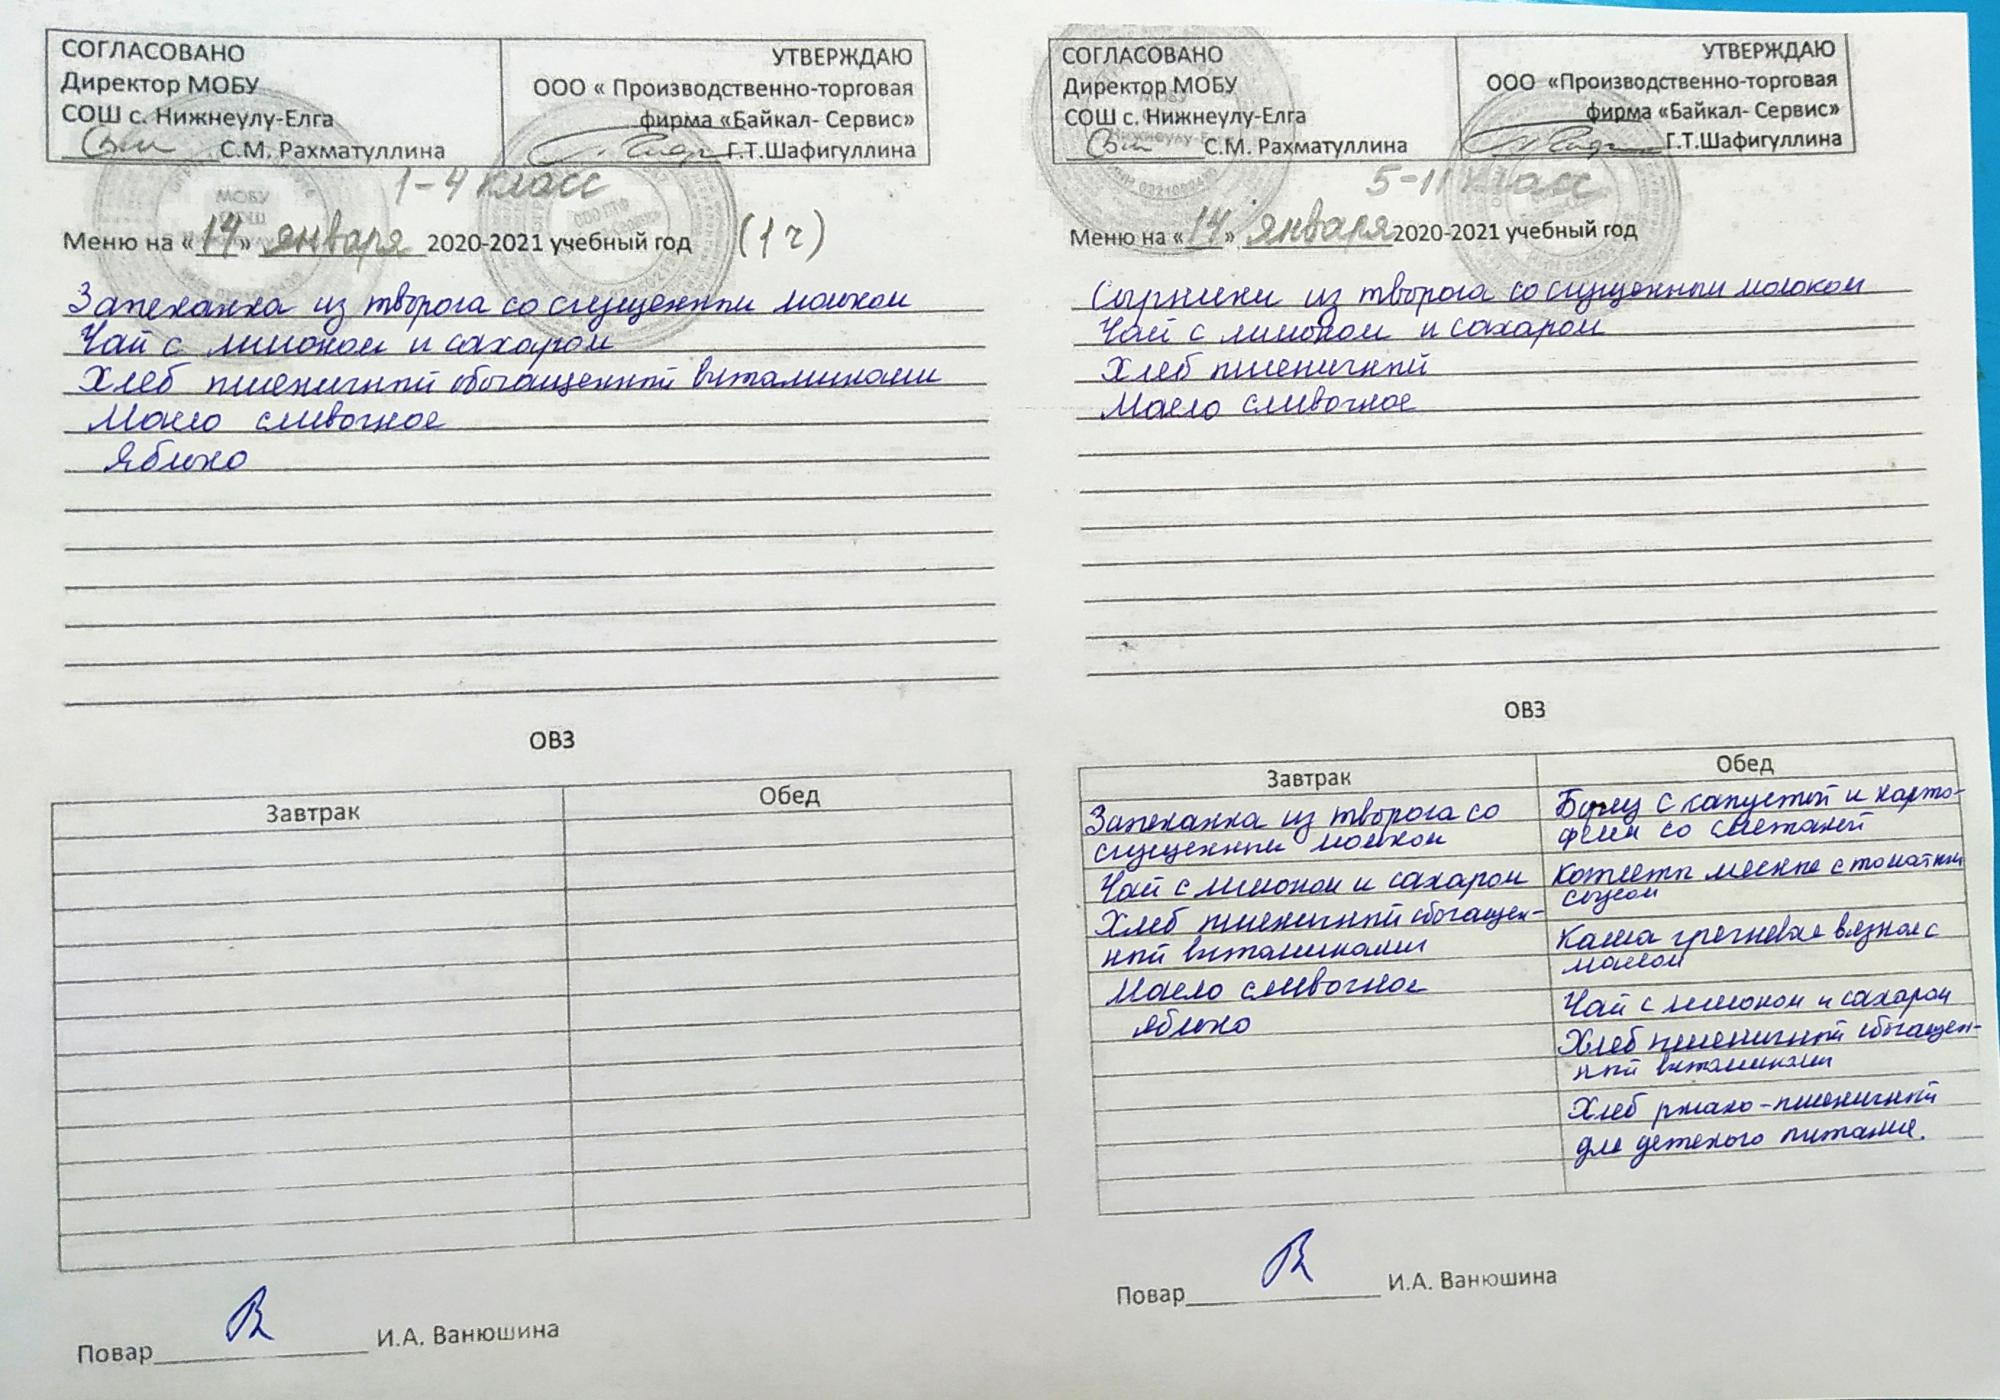 СОГЛАСОВАНО
Директор МОБУ
СОШ с. Нижнеулу-Елга
С.М. Рахматуллина
УТВЕРЖДАЮ
ООО « Производственно-торговая
фирма «Байкал- Сервис»
Г.Т.Шафигуллина
1-4 класс
Меню на «14» января 2020-2021 учебный год (1 ч)
Запеканка из творога со сгущенным молоком
Чай с лимоном и сахаром
Хлеб пшеничный обогащенный витаминами
Масло сливочное
Яблоко
ОВЗ
Завтрак
Обед
Повар И.А. Ванюшина
СОГЛАСОВАНО
Директор МОБУ
СОШ с. Нижнеулу-Елга
С.М. Рахматуллина
УТВЕРЖДАЮ
ООО «Производственно-торговая
фирма «Байкал- Сервис»
Г.Т.Шафигуллина
5-11 класс
Меню на «14» января 2020-2021 учебный год
Сырники из творога со сгущенным молоком
Чай с лимоном и сахаром
Хлеб пшеничный
Масло сливочное
ОВЗ
Завтрак
Запеканка из творога со
сгущенным молоком
Чай с лимоном и сахаром
Хлеб пшеничный обогащен-
ный витаминами
Масло сливочное
яблоко
Обед
Борщ с капустой и карто-
фелем со сметаной
Котлеты мясные с томатным
соусом
Каша гречневая вязкая с
маслом
Чай с лимоном и сахаром
Хлеб пшеничный обогащен-
ный витаминами
Хлеб ржано-пшеничный
для детского питания.
Повар И.А. Ванюшина